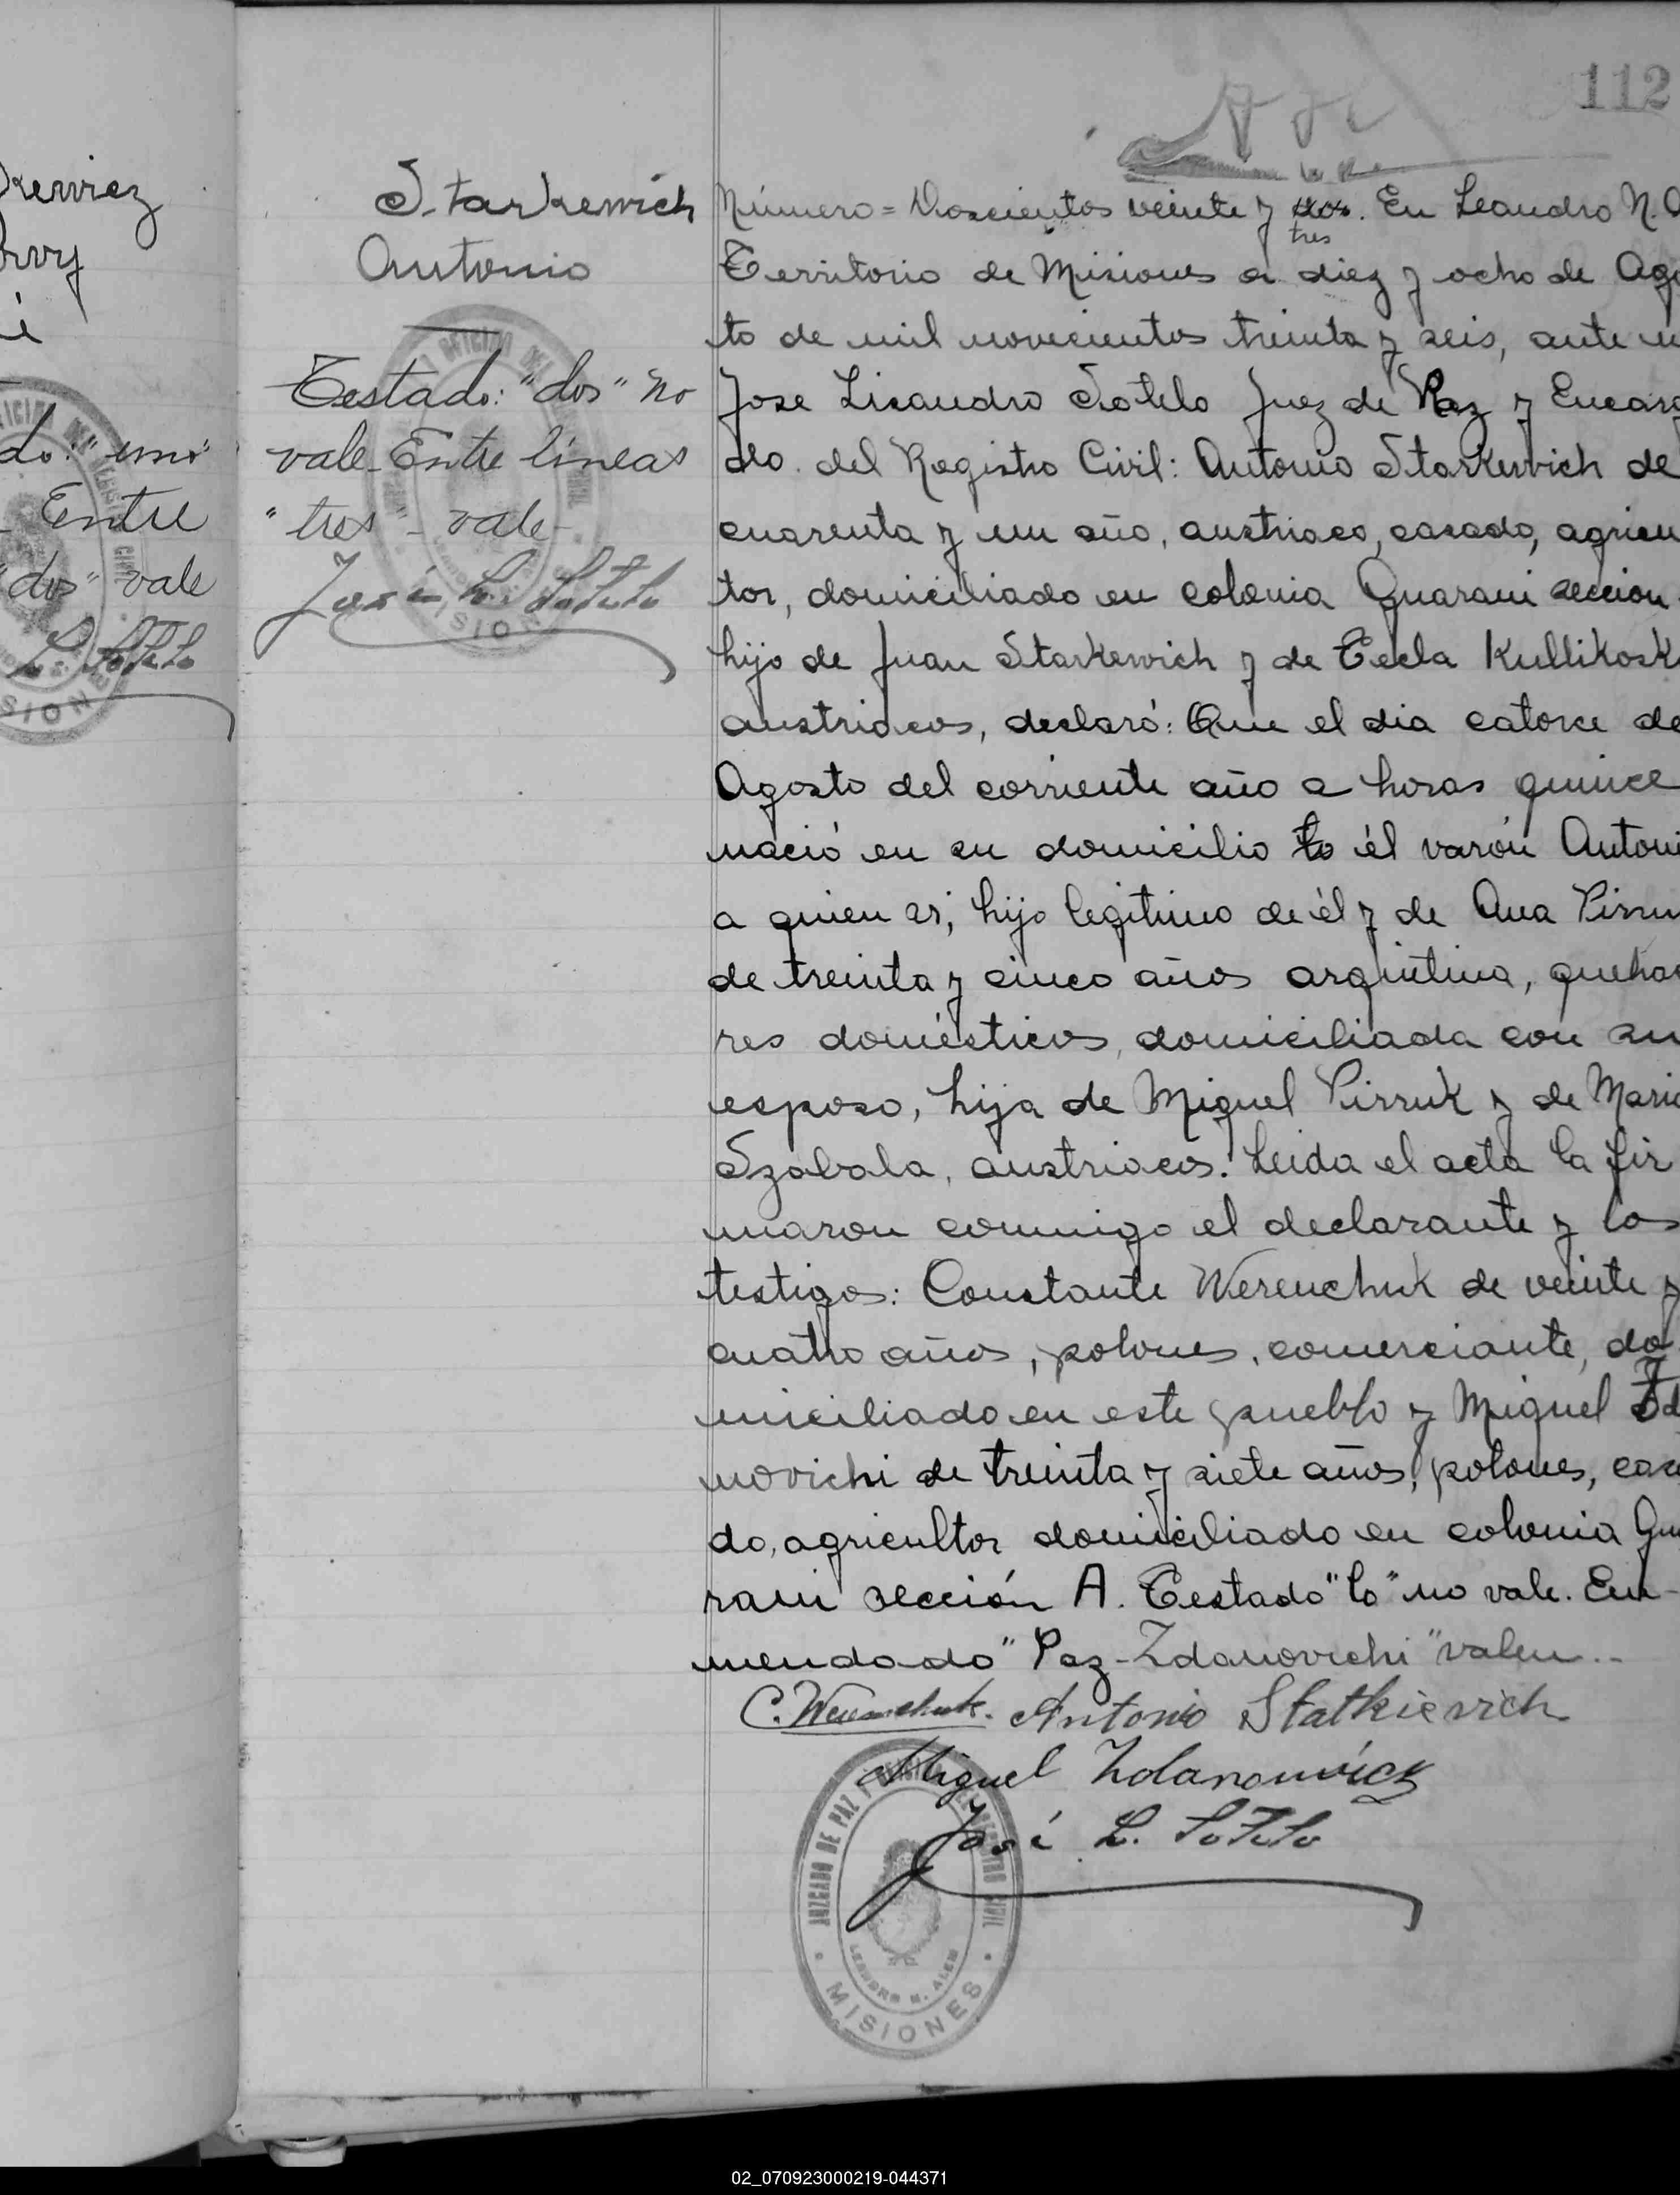 112
Starkewich
Antonio
Testado: "dos" no
vale - Entre lineas
"tres" - vale -
José L. Sotelo
Número = Doscientos veinte y dos. En Leandro N.
tres
Territorio de Misiones a diez y ocho de Ago
to de mil novecientos treinta y seis, ante
Jose Lisandro Sotelo Juez de Paz y Encarg
do del Registro Civil: Antonio Starkewich de
cuarenta y un año, austriaco, casado, agricu
tor, domiciliado en colonia Guarani seccion
hijo de Juan Starkewich y de Tecla Kullikosk
austriacos, declaró: Que el dia catorce de
Agosto del corriente año a horas quince
nació en su domicilio lo él varón Antoni
a quien es; hijo legitimo de él y de Ana Pirru
de treinta y cinco años argentina, queha
res domésticos, domiciliada con su
esposo, hija de Miguel Pirruk y de Mari
Szabala, austriacos. Leida el acta la fir
maron conmigo el declarante y los
testigos: Constante Werenchuk de veinte y
cuatro años, polones, comerciante, do
miciliado en este pueblo y Miguel Zd
novichi de treinta y siete años, polones, cas
do, agricultor domiciliado en colonia Gu
rani sección A. Testado "lo" no vale. En-
mendado "Paz - Zdanovichi" valen..
C. Werenchuk. Antonio Statkievich
Miguel Zdanowicz
José L. Sotelo
JUZGADO DE PAZ
REGISTRO CIVIL
LEANDRO N. ALEM
MISIONES
do: "uno"
Entre
"dos" vale
L. Sotelo
02_070923000219-044371